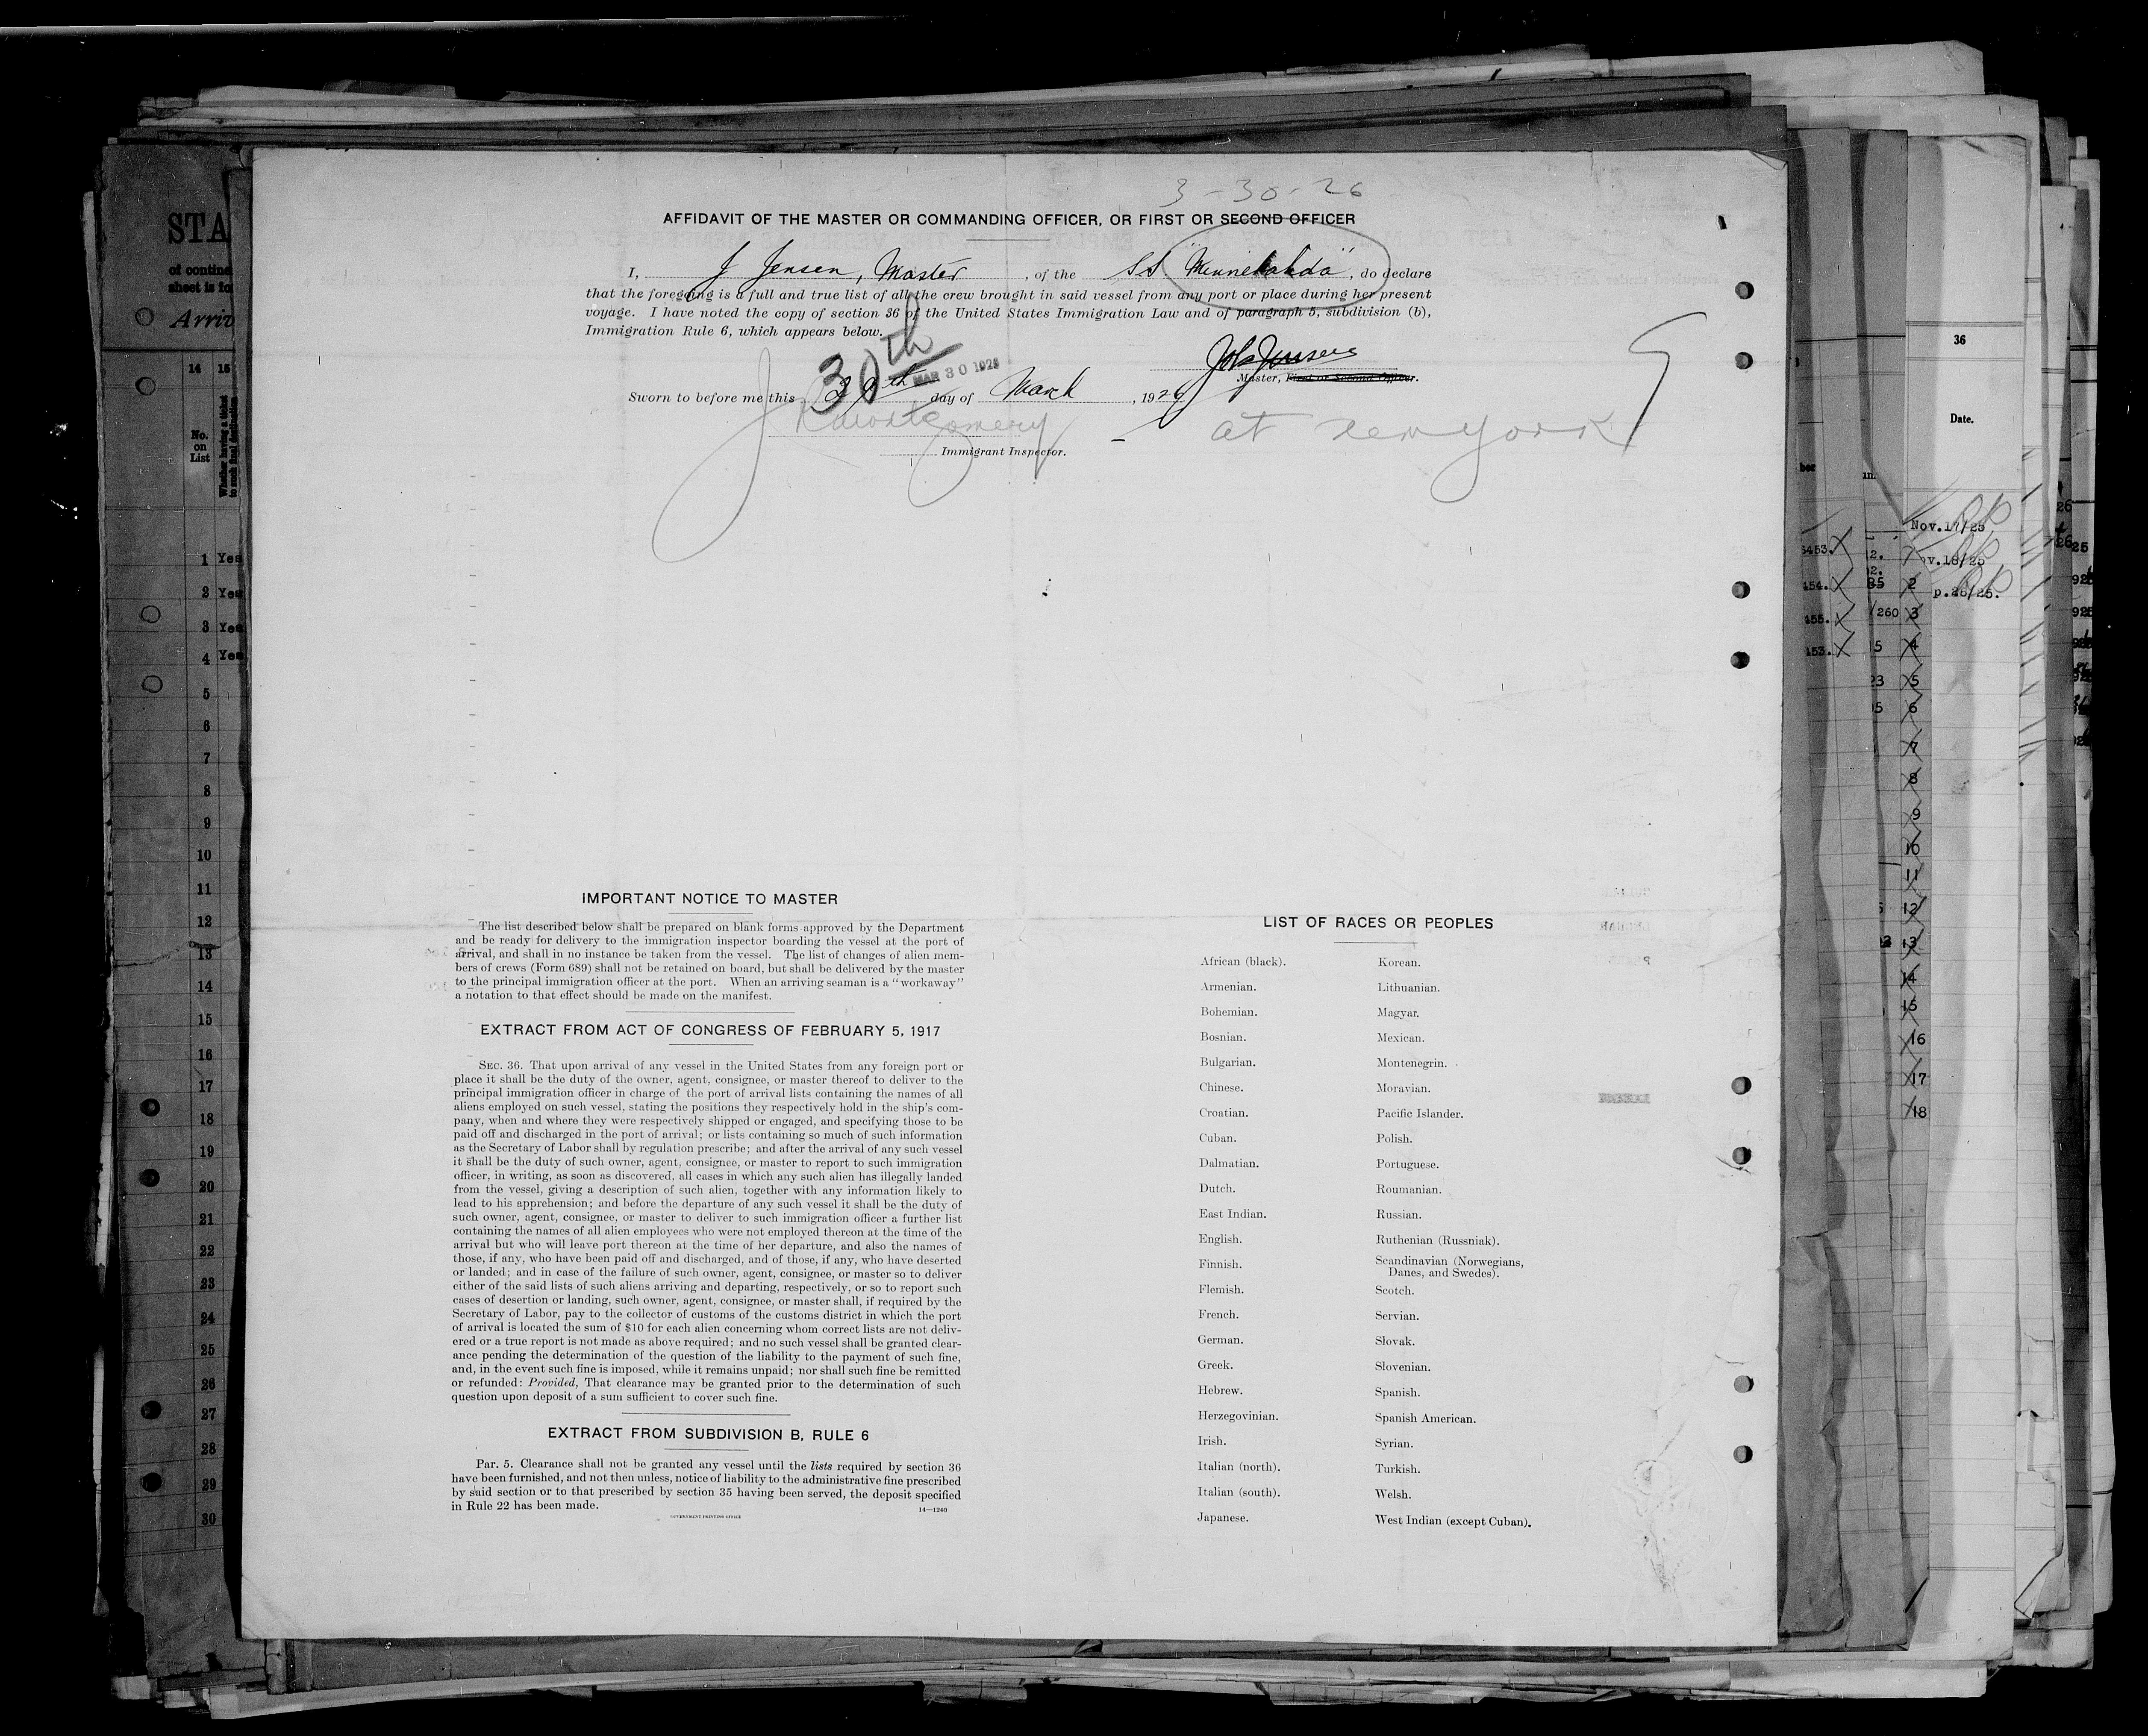 3-30-26
AFFIDAVIT OF THE MASTER OR COMMANDING OFFICER, OR FIRST OR SECOND OFFICER
I, J Jensen, Master, of the SS "Minnekahda", do declare
that the foregoing is a full and true list of all the crew brought in said vessel from any port or place during her present
voyage. I have noted the copy of section 36 of the United States Immigration Law and of paragraph 5, subdivision (b),
Immigration Rule 6, which appears below.
Master, First or Second Officer.
30th
MAR 30 1926
Sworn to before me this 29th day of March, 1926
Montgomery - at New York
Immigrant Inspector.
IMPORTANT NOTICE TO MASTER
The list described below shall be prepared on blank forms approved by the Department
and be ready for delivery to the immigration inspector boarding the vessel at the port of
arrival, and shall in no instance be taken from the vessel. The list of changes of alien mem-
bers of crews (Form 689) shall not be retained on board, but shall be delivered by the master
to the principal immigration officer at the port. When an arriving seaman is a "workaway"
a notation to that effect should be made on the manifest.
EXTRACT FROM ACT OF CONGRESS OF FEBRUARY 5, 1917
SEC. 36. That upon arrival of any vessel in the United States from any foreign port or
place it shall be the duty of the owner, agent, consignee, or master thereof to deliver to the
principal immigration officer in charge of the port of arrival lists containing the names of all
aliens employed on such vessel, stating the positions they respectively hold in the ship's com-
pany, when and where they were respectively shipped or engaged, and specifying those to be
paid off and discharged in the port of arrival; or lists containing so much of such information
as the Secretary of Labor shall by regulation prescribe; and after the arrival of any such vessel
it shall be the duty of such owner, agent, consignee, or master to report to such immigration
officer, in writing, as soon as discovered, all cases in which any such alien has illegally landed
from the vessel, giving a description of such alien, together with any information likely to
lead to his apprehension; and before the departure of any such vessel it shall be the duty of
such owner, agent, consignee, or master to deliver to such immigration officer a further list
containing the names of all alien employees who were not employed thereon at the time of the
arrival but who will leave port thereon at the time of her departure, and also the names of
those, if any, who have been paid off and discharged, and of those, if any, who have deserted
or landed; and in case of the failure of such owner, agent, consignee, or master so to deliver
either of the said lists of such aliens arriving and departing, respectively, or so to report such
cases of desertion or landing, such owner, agent, consignee, or master shall, if required by the
Secretary of Labor, pay to the collector of customs of the customs district in which the port
of arrival is located the sum of $10 for each alien concerning whom correct lists are not deliv-
ered or a true report is not made as above required; and no such vessel shall be granted clear-
ance pending the determination of the question of the liability to the payment of such fine,
and, in the event such fine is imposed, while it remains unpaid; nor shall such fine be remitted
or refunded: Provided, That clearance may be granted prior to the determination of such
question upon deposit of a sum sufficient to cover such fine.
EXTRACT FROM SUBDIVISION B, RULE 6
Par. 5. Clearance shall not be granted any vessel until the lists required by section 36
have been furnished, and not then unless, notice of liability to the administrative fine prescribed
by said section or to that prescribed by section 35 having been served, the deposit specified
in Rule 22 has been made.
14—1240
GOVERNMENT PRINTING OFFICE
LIST OF RACES OR PEOPLES
African (black).
Armenian.
Bohemian.
Bosnian.
Bulgarian.
Chinese.
Croatian.
Cuban.
Dalmatian.
Dutch.
East Indian.
English.
Finnish.
Flemish.
French.
German.
Greek.
Hebrew.
Herzegovinian.
Irish.
Italian (north).
Italian (south).
Japanese.
Korean.
Lithuanian.
Magyar.
Mexican.
Montenegrin.
Moravian.
Pacific Islander.
Polish.
Portuguese.
Roumanian.
Russian.
Ruthenian (Russniak).
Scandinavian (Norwegians,
Danes, and Swedes).
Scotch.
Servian.
Slovak.
Slovenian.
Spanish.
Spanish American.
Syrian.
Turkish.
Welsh.
West Indian (except Cuban).
STA
of contine
sheet is fo
Arriv
14 15
No.
on
List
Whether having a ticket
to such final destination
1 Yes
2 Yes
3 Yes
4 Yes
5
6
7
8
9
10
11
12
13
14
15
16
17
18
19
20
21
22
23
24
25
26
27
28
29
30
36
Date.
Nov.17/25
ov.18/25
p.26/25.
2
3
4
5
6
7
8
9
10
11
12
13
14
15
16
17
18